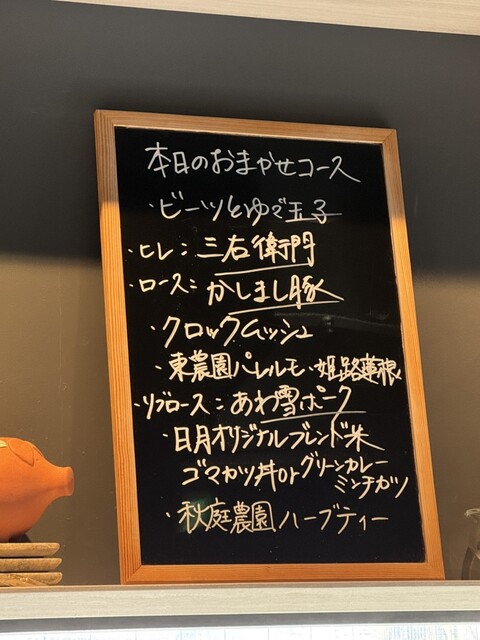 本日のおまかせコース
・ビーツとゆで玉子
・ヒレ：三右衛門
・ロース：かしまし豚
・クロックムッシュ
・東農園パレルモ・姫路蓮根
・リブロース：あわ雪ポーク
・日月オリジナルブレンド米
ゴマカツ丼orグリーンカレー
ミンチカツ
・秋庭農園ハーブティー